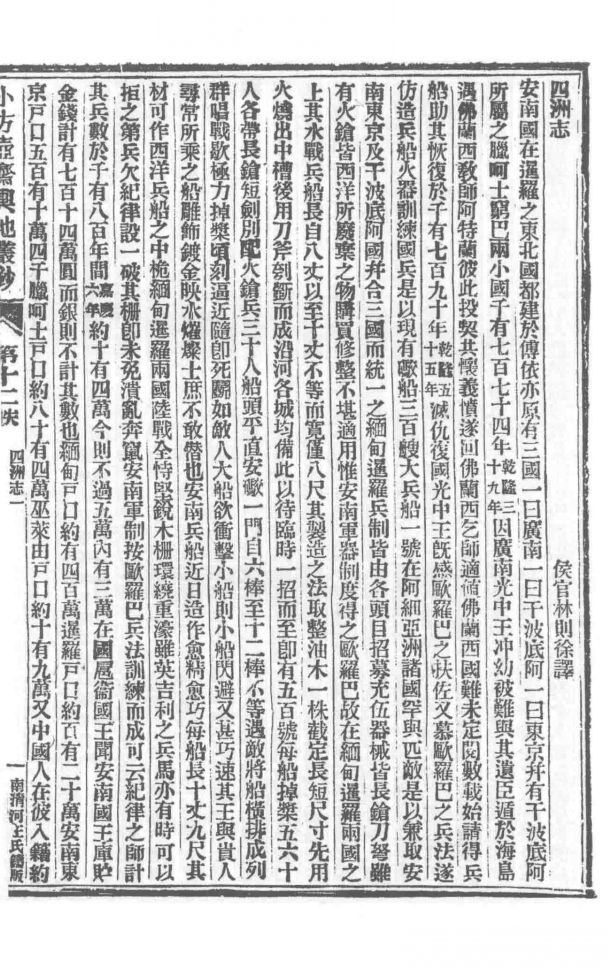 四洲志
侯官林則徐譯
安南國在暹羅之東北國都建於傅依亦原有三國一曰廣南一曰干波底阿一曰東京幷有干波底阿
所屬之臘呵士窮巴兩小國千有七百七十四年乾隆三十九年因廣南光中王冲幼被難與其遺臣遁於海島
遇佛蘭西敎師阿特蘭彼此投契其懷義憤遂回佛蘭西乞師適値佛蘭西國難未定閱數載始請得兵
船助其恢復於千有七百九十年乾隆五十五年滅仇復國光中王旣感歐羅巴之扶佐又慕歐羅巴之兵法遂
仿造兵船火器訓練國兵是以現有礮船三百艘大兵船一號在阿細亞洲諸國罕與匹敵是以兼取安
南東京及干波底阿國幷合三國而統一之緬甸暹羅兵制皆由各頭目招募充伍器械皆長鎗刀弩雖
有火鎗皆西洋所廢棄之物購買修整不堪適用惟安南軍器制度得之歐羅巴故在緬甸暹羅兩國之
上其水戰兵船長自八丈以至十丈不等而寬僅八尺其製造之法取整油木一株截定長短尺寸先用
火燒出中槽後用刀斧剜斷而成沿河各城均備此以待臨時一招而至卽有五百號每船掉槳五六十
人各帶長鎗短劍別配火鎗兵三十人船頭平直安礮一門自六棒至十二棒不等遇敵將船橫排成列
群唱戰歌極力掉槳頃刻逼近隨卽死鬭如敵人大船欲衝擊小船則小船閃避又甚巧速其王與貴人
尋常所乘之船雕飾鍍金映水燿燦士庶不敢僭也安南兵船近日造作愈精愈巧每船長十丈九尺其
材可作西洋兵船之中桅緬甸暹羅兩國陸戰全恃堅銳木柵環繞重濠雖英吉利之兵馬亦有時可以
拒之第兵欠紀律設一破其柵卽未免潰亂奔竄安南軍制按歐羅巴兵法訓練而成可云紀律之師計
其兵數於千有八百年間嘉慶六年約十有四萬今則不過五萬內有三萬在國扈衞國王聞安南國王庫貯
金錢計有七百十四萬圓而銀則不計其數也緬甸戸口約有四百萬暹羅戸口約百有二十萬安南東
京戸口五百有十萬四千臘呵士戸口約八十有四萬巫萊由戸口約十有九萬又中國人在彼入籍約
小方壺齋輿地叢鈔
第十二帙
四洲志一
一
南淸河王氏鑄版